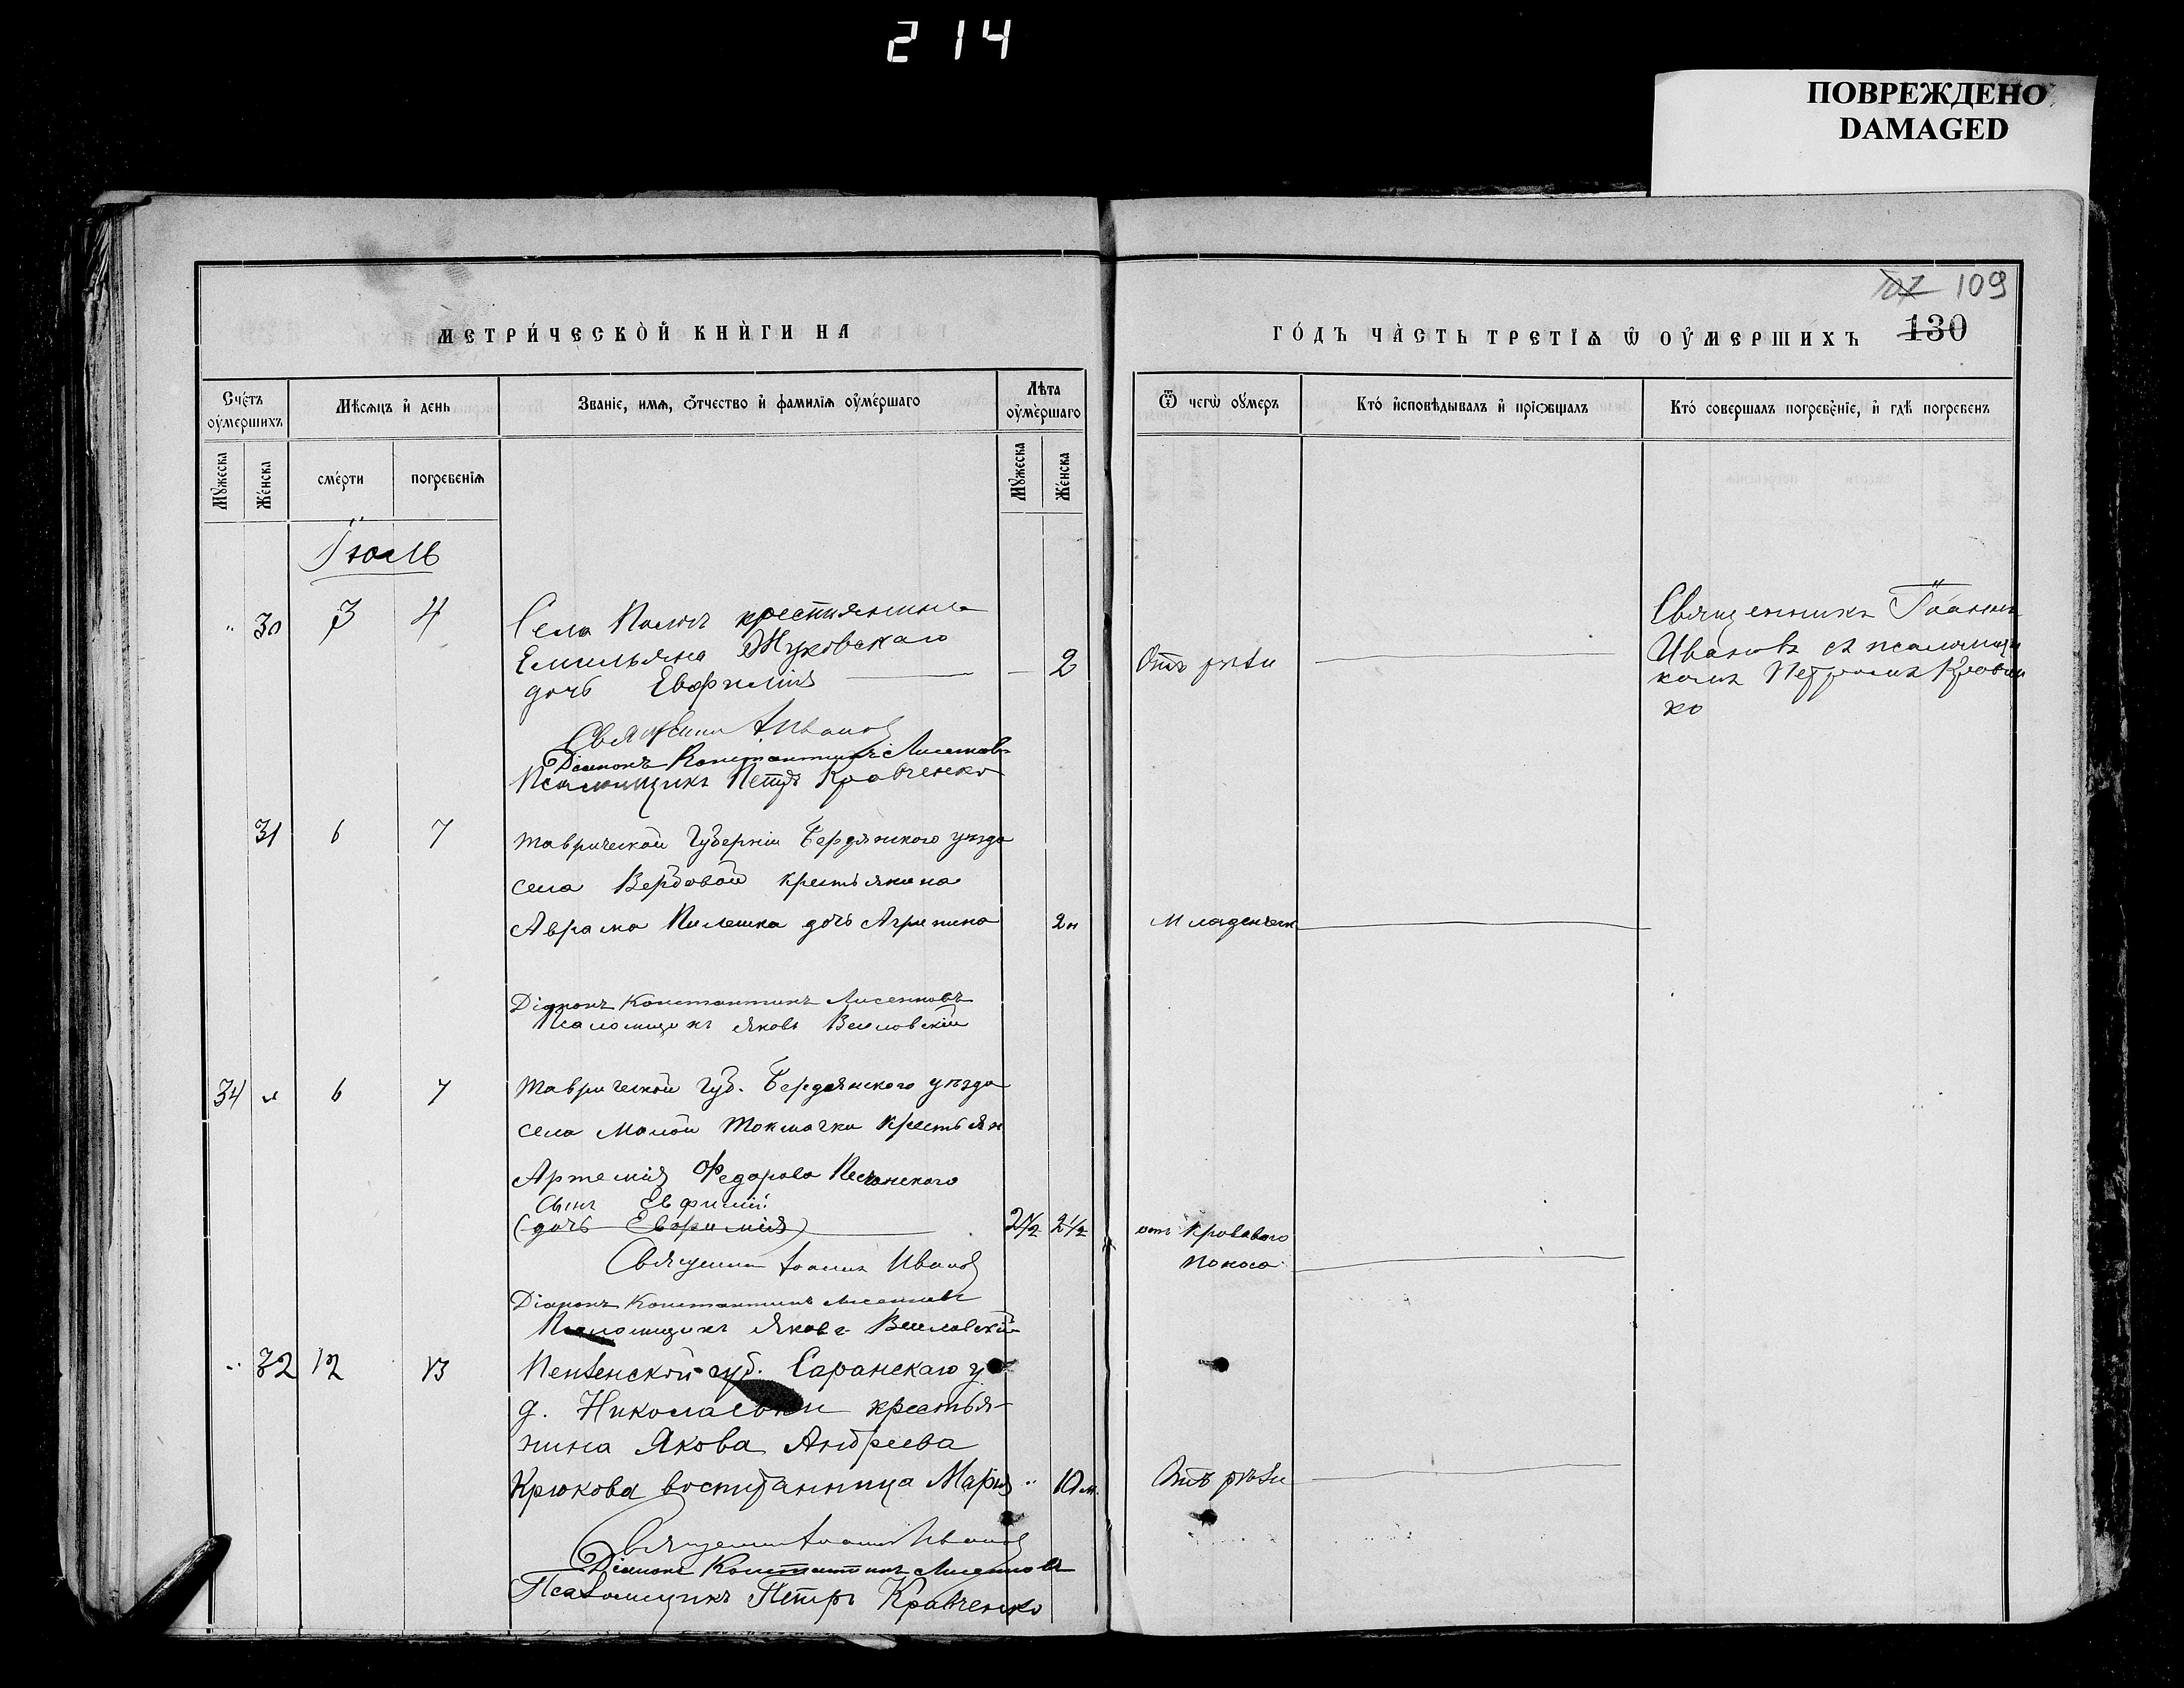 214
ПОВРЕЖДЕНО
DAMAGED
109
130
МЕТРИ́ЧЕСКОЙ КНИ́ГИ НА
ГО́ДЪ ЧА́СТЬ ТРЕТІѦ Ѡ ОУ҆МЕРШИХЪ
Сче́тъ оу҆ме́ршихъ
Мѣ́сѧцъ и҆ день
Званіе, имѧ, о҆тчество и҆ фамиліѧ оу҆ме́ршаго
Лѣта оу҆ме́ршаго
Ѿ чегѡ̀ оумеръ
Кто́ и҆сповѣдывалъ и҆ прїѡбщалъ
Кто́ совершалъ погребе́нїе, и҆ гдѣ̀ погребенъ
Мꙋжеска
Же́нска
сме́рти
погребенїѧ
Мꙋжеска
Же́нска
Іюль
" 30 3 4
Села Пологъ крестьянина
Емильяна Жуковскаго
дочь Евфимія
2
Отъ рѣзи
Священникъ Іоаннъ
Ивановъ съ псаломщи
комъ Петромъ Кравчен
ко
Священник І Иванов
Діаконъ Константинъ Лисенковъ
Псаломщикъ Петръ Кравченко
31 6 7
Таврической Губерніи Бердянского уѣзда
села Вербовой крестьянина
Аврама Пилешка дочь Агрипина
2н
Младенческ
Діаконъ Константинъ Лисенковъ
Псаломщикъ Яковъ Веселовскій
34 " 6 7
Таврической Губ. Бердянского уѣзда
села Малой Токмачки крестьян
Артемія Федорова Песчанского
сынъ Евфимій
(дочь Евфимія)
2 1/2 2 1/2
отъ кроваваго
поноса
Священник Іоаннъ Иванов
Діаконъ Константинъ Лисенковъ
Псаломщикъ Яковъ Веселовскій
" 32 12 13
Пензенской губ. Саранскаго у
д. Николаевки крестья-
нина Якова Андреева
Крюкова воспитанница Марія
" 10 м.
Отъ рѣзи
Священник Іоаннъ Иванов
Діаконъ Константинъ Лисенковъ
Псаломщикъ Петръ Кравченко